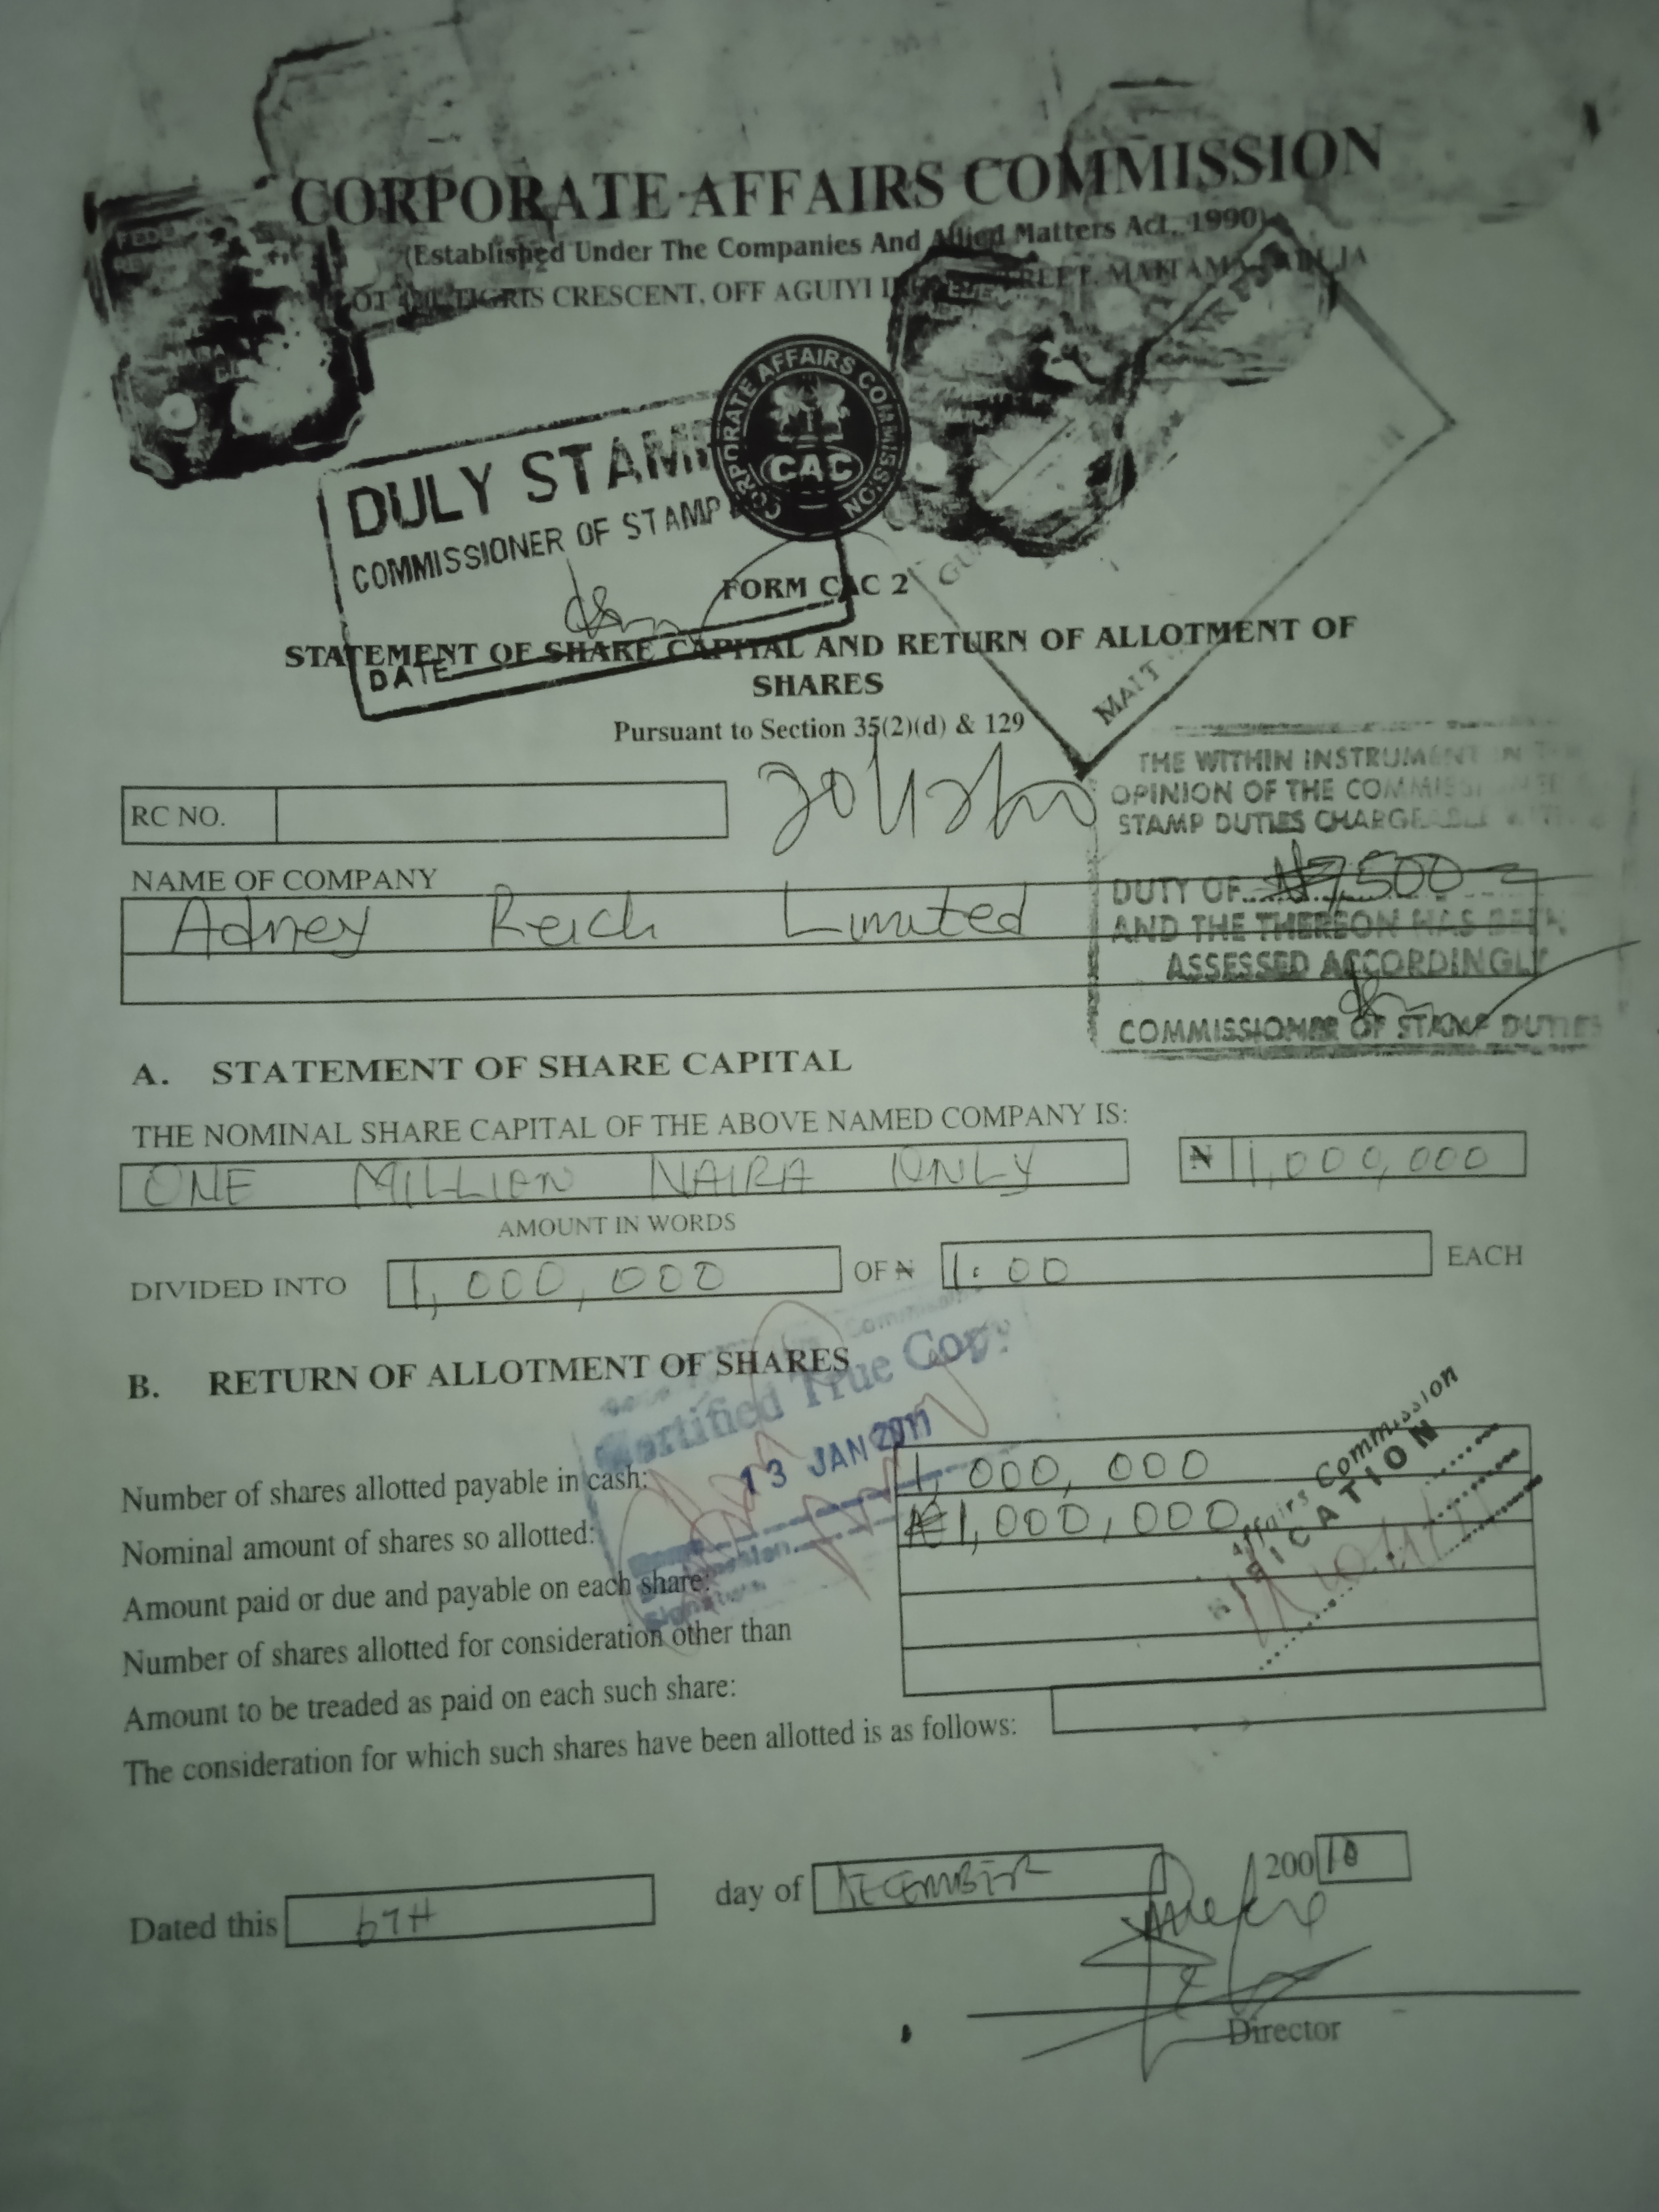 CORPORATE AFFAIRS COMMISSION
(Established Under The Companies And Allied Matters Act, 1990)
TIGRIS CRESCENT, OFF AGUIYI
CORPORATE AFFAIRS COMMISSION
CAC
DULY
COMMISSIONER OF STAMP
DATE
FORM CAC 2
STATEMENT OF SHARE CAPITAL AND RETURN OF ALLOTMENT OF
SHARES
Pursuant to Section 35(2)(d) & 129
RC NO.
THE WITHIN INSTRUMENT IN
OPINION OF THE
STAMP DUTIES CHARGEABLE
DUTY OF ₦7,500
AND THE THEREON HAS BEEN
ASSESSED ACCORDINGLY
COMMISSIONER OF STAMP DUTIES
NAME OF COMPANY
Adney Reich Limited
A. STATEMENT OF SHARE CAPITAL
THE NOMINAL SHARE CAPITAL OF THE ABOVE NAMED COMPANY IS:
ONE MILLION NAIRA ONLY ₦ 1,000,000
AMOUNT IN WORDS
DIVIDED INTO 1,000,000 OF ₦ 1.00 EACH
B. RETURN OF ALLOTMENT OF SHARES
Certified True Copy
13 JAN 2011
Affairs Commission
Number of shares allotted payable in cash: 1,000,000
Nominal amount of shares so allotted: ₦1,000,000
Amount paid or due and payable on each share:
Number of shares allotted for consideration other than
Amount to be treaded as paid on each such share:
The consideration for which such shares have been allotted is as follows:
Dated this 6TH day of DECEMBER 200 10
Director